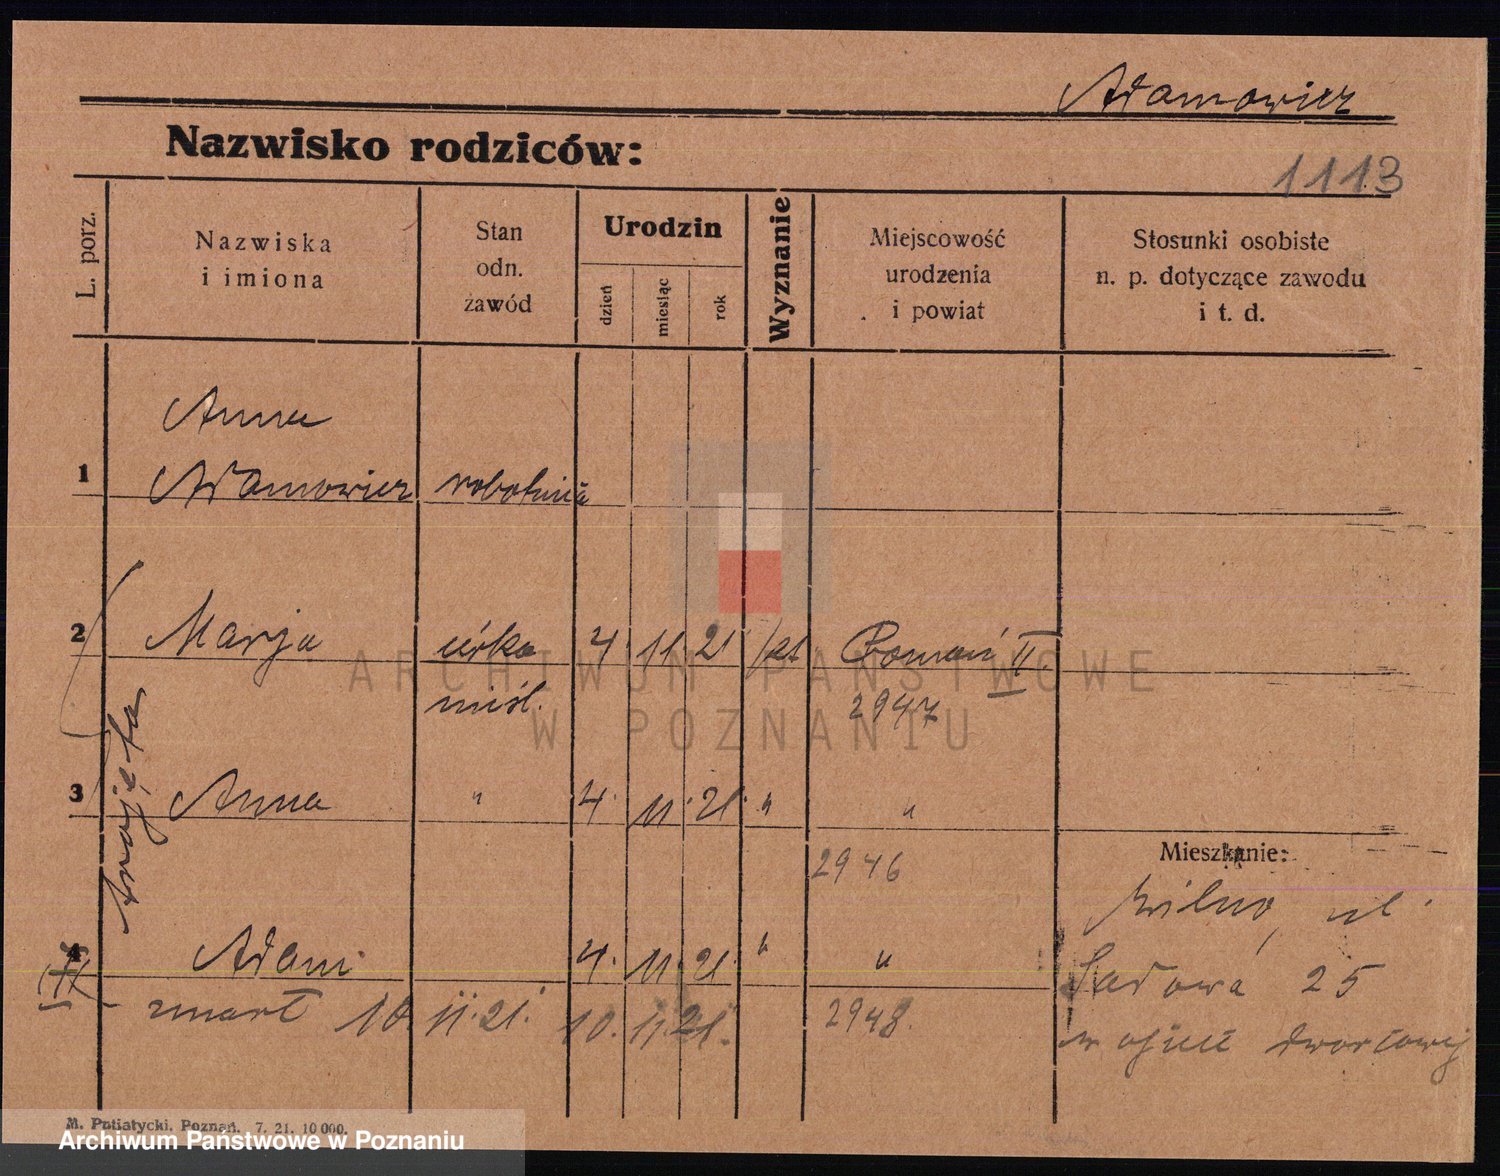 Adamowicz
Nazwisko rodziców:
1113
L. porz.
Nazwiska
i imiona
Stan
odn.
zawód
Urodzin
dzień
miesiąc
rok
Wyznanie
Miejscowość
urodzenia
i powiat
Stosunki osobiste
n. p. dotyczące zawodu
i t. d.
Anna
1 Adamowicz robotnica
2 Marja córka 4. 11. 21 kt Poznań II.
nieśl. 2947
3 Anna " 4. 11. 21. " "
2946
Mieszkanie:
Wilno, ul.
4 Adam 4. 11. 21. " "
Sadowa 25
zmarł 10. 11. 21. 10. 11. 21. 2948.
dworcowej
trojęta
ARCHIWUM PAŃSTWOWE
W POZNANIU
M. Putiatycki. Poznań. 7. 21. 10 000.
Archiwum Państwowe w Poznaniu